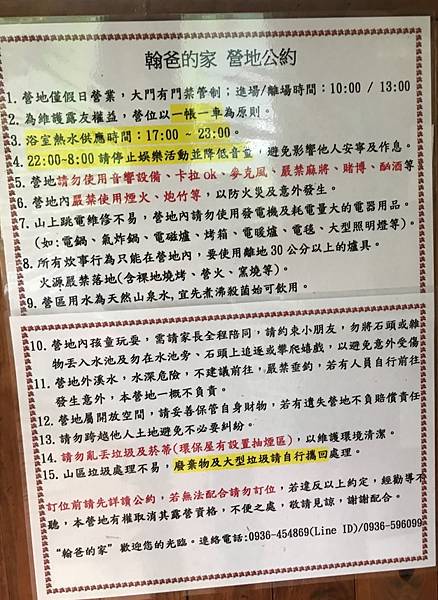 翰爸的家 營地公約
1. 營地僅假日營業，大門有門禁管制；進場/離場時間：10:00 / 13:00
2. 為維護露友權益，營位以一帳一車為原則。
3. 浴室熱水供應時間：17:00 ~ 23:00。
4. 22:00~8:00 請停止娛樂活動並降低音量，避免影響他人安寧及作息。
5. 營地請勿使用音響設備、卡拉ok、麥克風、嚴禁麻將、賭博、酗酒等
6. 營地內嚴禁使用煙火、炮竹等，以防火災及意外發生。
7. 山上跳電維修不易，營地內請勿使用發電機及耗電量大的電器用品。
(如:電鍋、氣炸鍋、電磁爐、烤箱、電暖爐、電毯、大型照明燈等)。
8. 所有炊事行為只能在營地內，要使用離地30公分以上的爐具。
火源嚴禁落地(含裸地燒烤、營火、窯燒等)。
9. 營區用水為天然山泉水,宜先煮沸殺菌始可飲用。
10. 營地內孩童玩耍，需請家長全程陪同，請約束小朋友，勿將石頭或雜
物丟入水池及勿在水池旁、石頭上追逐或攀爬嬉戲，以避免意外受傷
11. 營地外溪水，水深危險，不建議前往，嚴禁垂釣，若有人員自行前往
發生意外，本營地一概不負責。
12. 營地屬開放空間，請妥善保管自身財物，若有遺失營地不負賠償責任
13. 請勿跨越他人土地避免不必要糾紛。
14. 請勿亂丟垃圾及菸蒂(環保屋有設置抽煙區)，以維護環境清潔。
15. 山區垃圾處理不易，廢棄物及大型垃圾請自行攜回處理。
訂位前請先詳讀公約，若無法配合請勿訂位，若違反以上約定，經勸導不
聽，本營地有權取消其露營資格，不便之處，敬請見諒，謝謝配合。
“翰爸的家”歡迎您的光臨。連絡電話:0936-454869(Line ID)/0936-596099